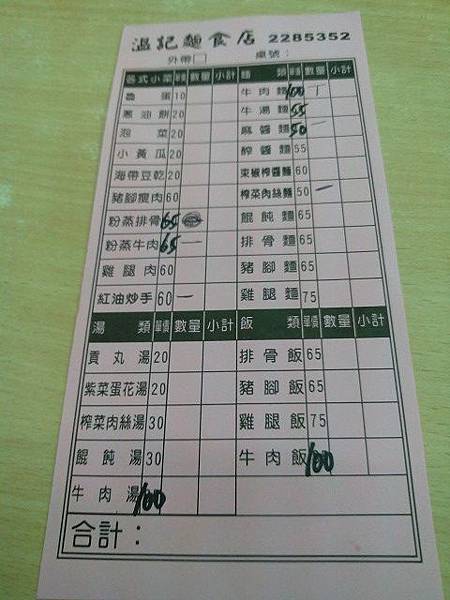 溫記麵食店 2285352
外帶□ 桌號：
各式小菜 單價 數量 小計 麵類 單價 數量 小計
魯蛋 10 牛肉麵 100 一
蔥油餅 20 牛湯麵 55
泡菜 20 麻醬麵 50
小黃瓜 20 酢醬麵 55
海帶豆乾 20 束椒榨醬麵 60
豬腳瘦肉 60 榨菜肉絲麵 50 一
粉蒸排骨 65 餛飩麵 65
粉蒸牛肉 65 一 排骨麵 65
雞腿肉 60 豬腳麵 65
紅油炒手 60 一 雞腿麵 75
湯類 單價 數量 小計 飯類 單價 數量 小計
貢丸湯 20 排骨飯 65
紫菜蛋花湯 20 豬腳飯 65
榨菜肉絲湯 30 雞腿飯 75
餛飩湯 30 牛肉飯 100
牛肉湯 100
合計：